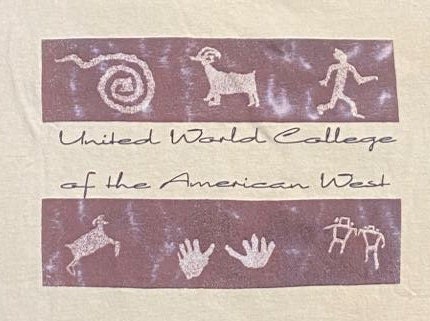 United World College
of the American West